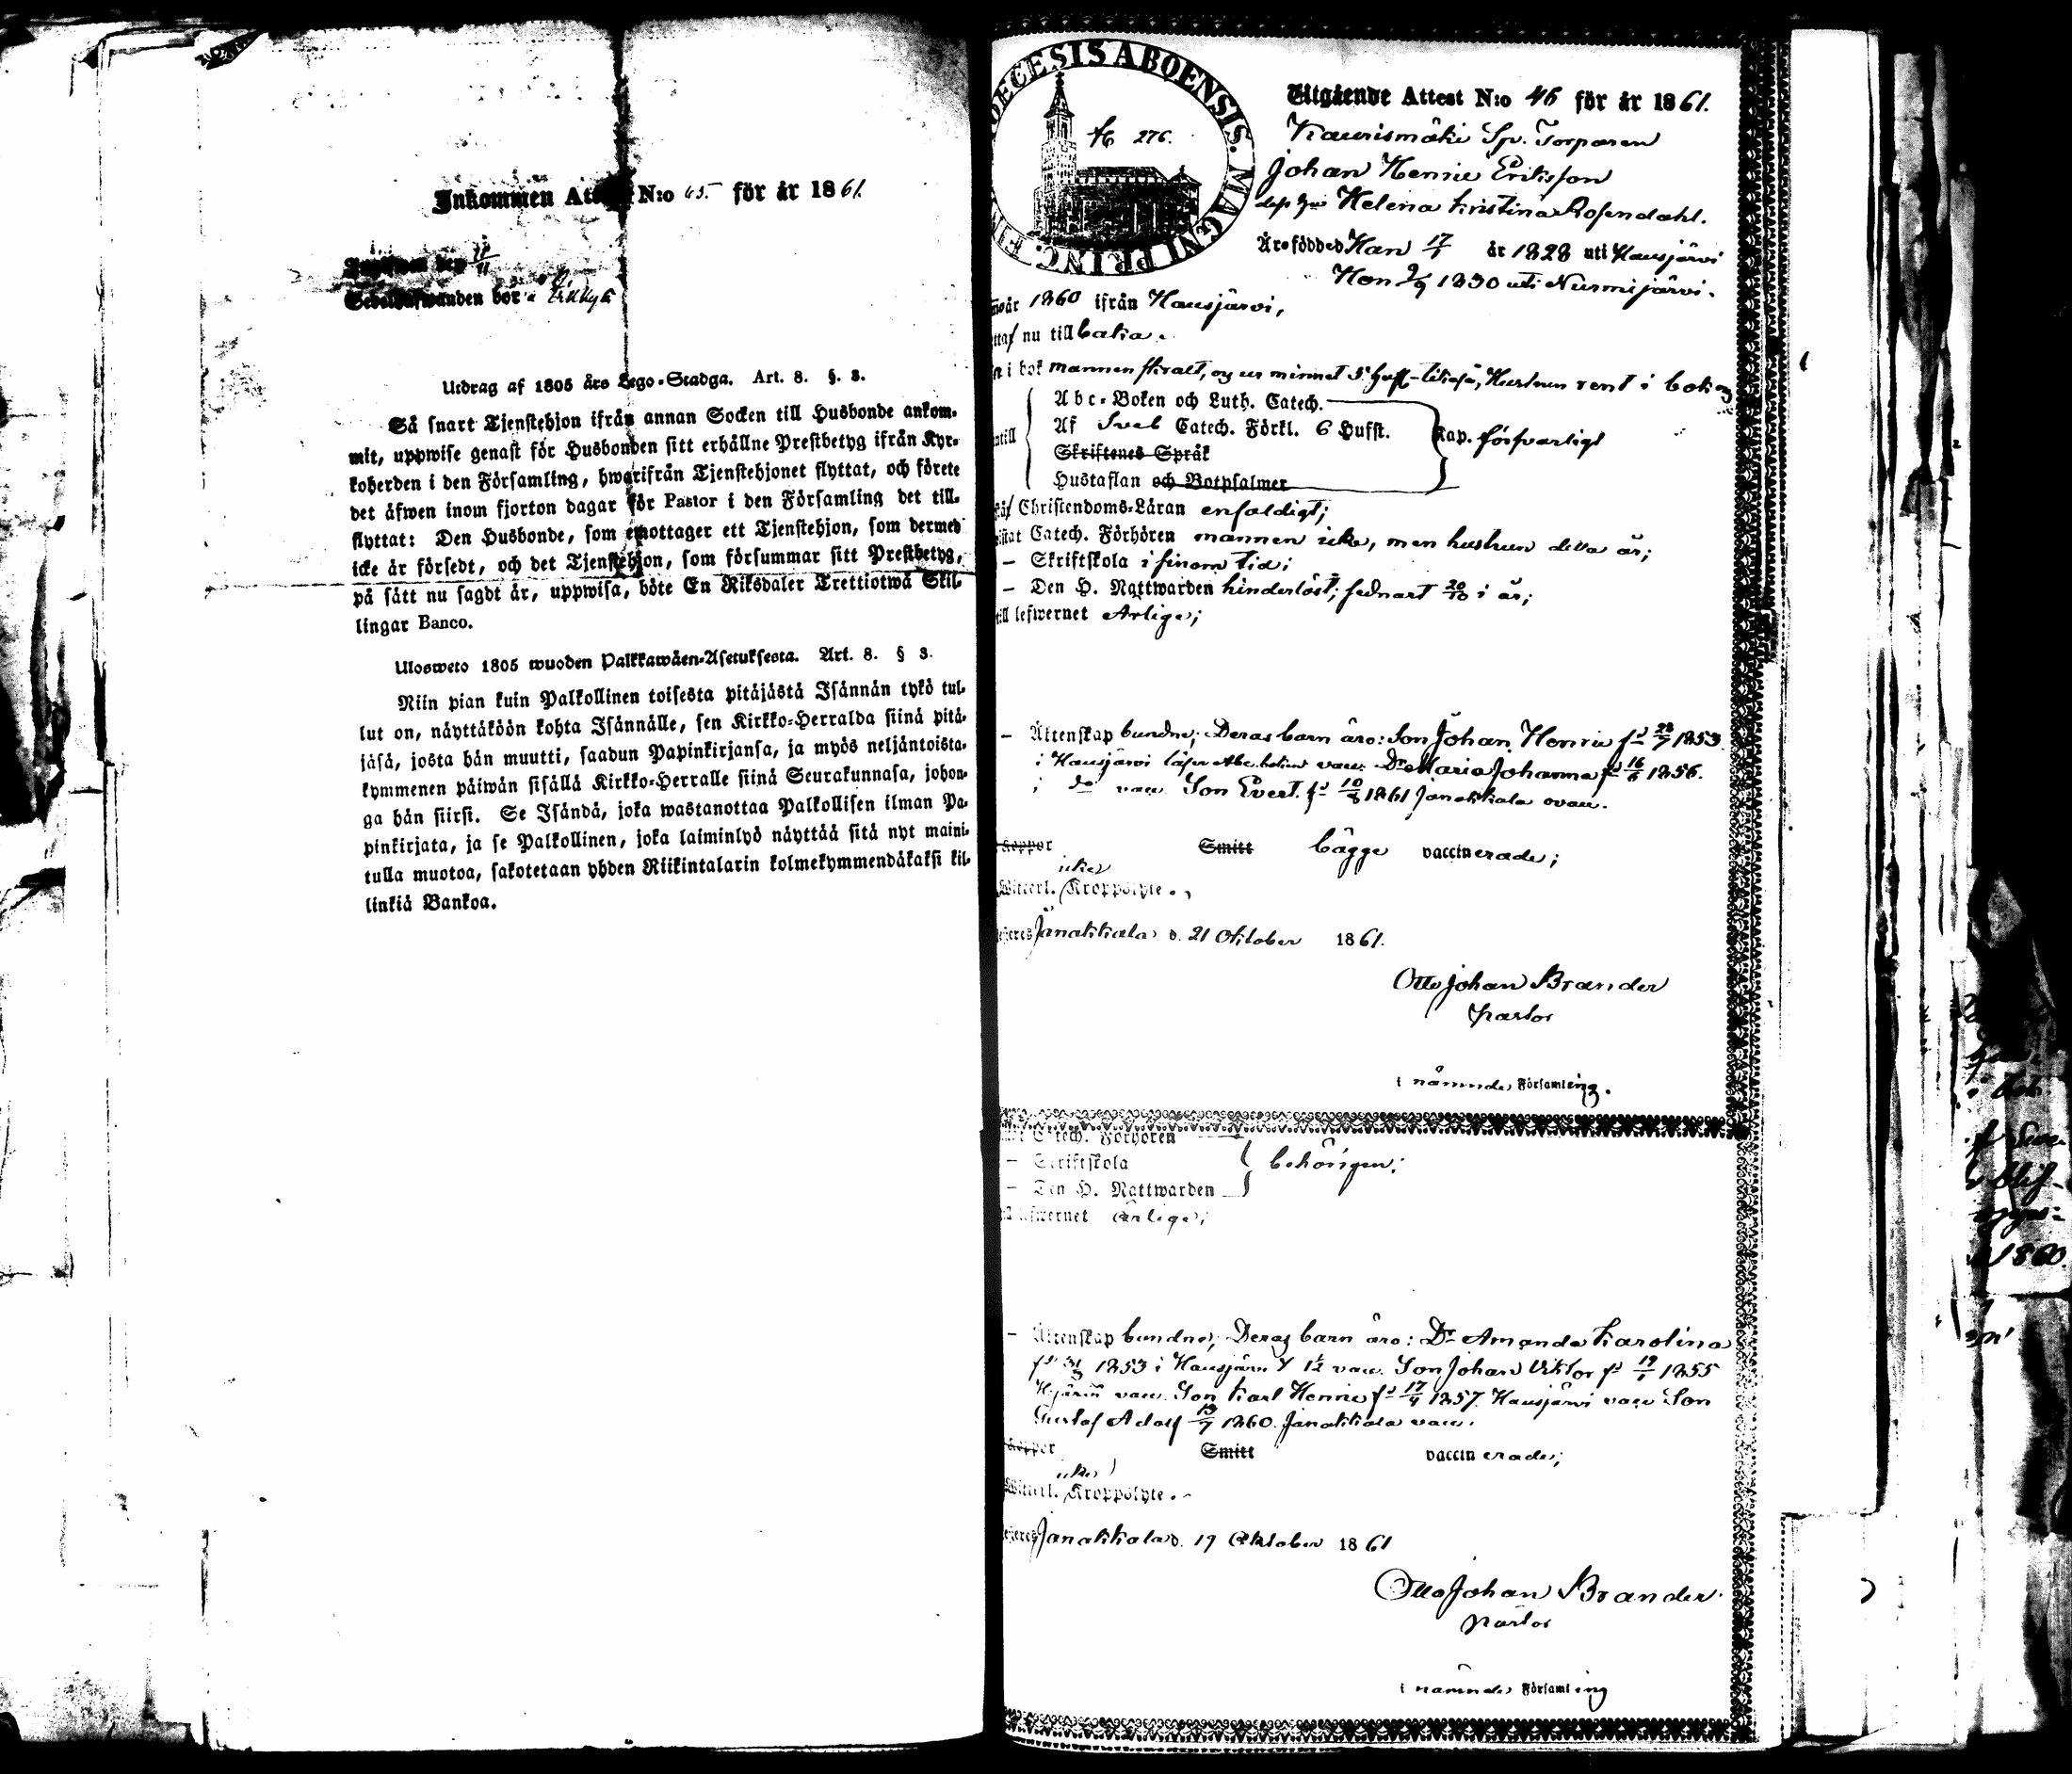 Inkommen Attest N:o 65. för år 1861.
Sedelhafwanden bor i
Utdrag af 1805 års Lego-Stadga. Art. 8. §. 3.
Så snart Tjenstehjon ifrån annan Socken till Husbonde ankom-
mit, uppwise genast för Husbonden sitt erhållne Prestbetyg ifrån Kyr-
koherden i den Församling, hwarifrån Tjenstehjonet flyttat, och förete
det äfwen inom fjorton dagar för Pastor i den Församling det till-
flyttat: Den Husbonde, som emottager ett Tjenstehjon, som dermed
icke är försedt, och det Tjenstehjon, som försummar sitt Prestbetyg,
på sätt nu sagdt är, uppwisa, böte En Riksdaler Trettiotwå Skil-
lingar Banco.
Ulosweto 1805 wuoden Palkkawäen-Asetuksesta. Art. 8. § 3.
Niin pian kuin Palkollinen toisesta pitäjästä Isännän tykö tul-
lut on, näyttäköön kohta Isännälle, sen Kirkko-Herralda siinä pitä-
jäsä, josta hän muutti, saadun Papinkirjansa, ja myös neljäntoista-
kymmenen päiwän sisällä Kirkko-Herralle siinä Seurakunnasa, johon-
ga hän siirsi. Se Isändä, joka wastanottaa Palkollisen ilman Pa-
pinkirjata, ja se Palkollinen, joka laiminlyö näyttää sitä nyt maini-
tulla muotoa, sakotetaan yhden Riikintalarin kolmekymmendäkaksi kil-
linkiä Bankoa.
DIOECESIS ABOENSIS. MAGNI PRINC.
276.
Utgående Attest N:o 46 för år 1861.
Kaurismäki Sp. Torparen
Johan Henric Eriksson
Helena Kristina Rosendahl.
Äro födde Han 17/1 år 1828 uti Hausjärvi
Hon 9/9 1830 uti Nurmijärvi.
år 1860 ifrån Hausjärvi,
nu tillbaka.
i bok mannen, ur minnet 5, Hustrun rent i bok
Abc-Boken och Luth. Catech.
Af Sveb Catech. Förkl. 6 Hufst. Kap. försvarligt
Skriftenes Språk
Hustaflan och Botpsalmer
Christendoms-Läran enfaldigt;
Catech. Förhören mannen icke, men hustrun detta år;
– Skriftskola i sinom tid;
– Den H. Nattwarden hinderlöst; sednast 20/10 i år;
till lefwernet Ärlige;
– Äktenskap bundne; Deras barn äro: Son Johan Henric fd 28/7 1853
i Hausjärvi läser Abc boken vacc. Dr Maria Johanna fd 16/6 1856.
i do vacc. Son Evert. fd 10/8 1861 Janakkala ovacc.
koppor Smitt bägge vaccinerade;
icke
Witterl. Kroppslyte.
Janakkala d. 21 Oktober 1861.
Otto Johan Brander
Pastor
i nämnde Församling.
Catech. Förhören
– Skriftskola behörigen;
– Den H. Nattwarden
lefwernet ärlige;
– Äktenskap bundne; Deras barn äro: Dr Amanda Karolina
1853 i Hausjärvi vacc. Son Johan Viktor fd 19/1 1855
vacc. Son Karl Henric fd 17/4 1857. Hausjärvi vacc Son
Gustaf Adolf 13/7 1860. Janakkala vacc.
koppor Smitt vaccinerade;
icke
Witterl. Kroppslyte.
Janakkala d. 19 Oktober 1861
Otto Johan Brander.
Pastor
i nämnde Församling
1860